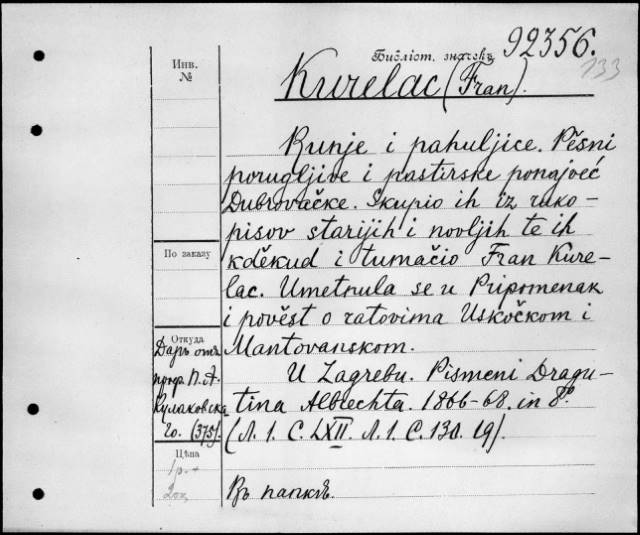 Библіот. значекъ 92356.
133
Инв.
№
Kurelac (Fran).
Runje i pahuljice. Pěsni
porugljive i pastirske ponajveć
Dubrovačke. Skupio ih iz ruko-
pisov starijih i novljih te ih
kděkud i tumačio Fran Kure-
lac. Umetnula se u Pripomenak
i pověst o ratovima Uskočkom i
Mantovanskom.
U Zagrebu. Pismeni Dragu-
tina Albrechta. 1866-68. in 8º.
(Л. 1. С. LXII. Л. 1. С. 130. 19).
Въ папкѣ.
По заказу
Откуда
Даръ отъ
проф. П. А.
Кулаковска
го. (375).
Цѣна
1р.